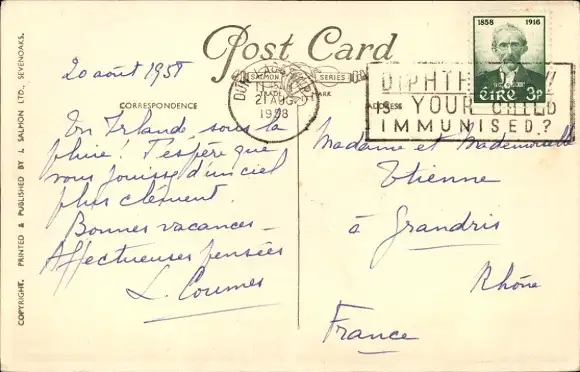 Post Card
SALMON SERIES
TRADE MARK
COPYRIGHT. PRINTED & PUBLISHED BY J. SALMON LTD., SEVENOAKS.
CORRESPONDENCE
ADDRESS
1858 1916
éire 3p
21 AUG
1958
DIPHTHERIA
IS YOUR CHILD
IMMUNISED?
20 août 1958
En Irlande sous la
pluie ! J'espère que
vous jouissez d'un ciel
plus clément.
Bonnes vacances –
Affectueuses pensées
L. Coumes
Madame et Mademoiselle
Etienne
à Grandris
Rhône
France